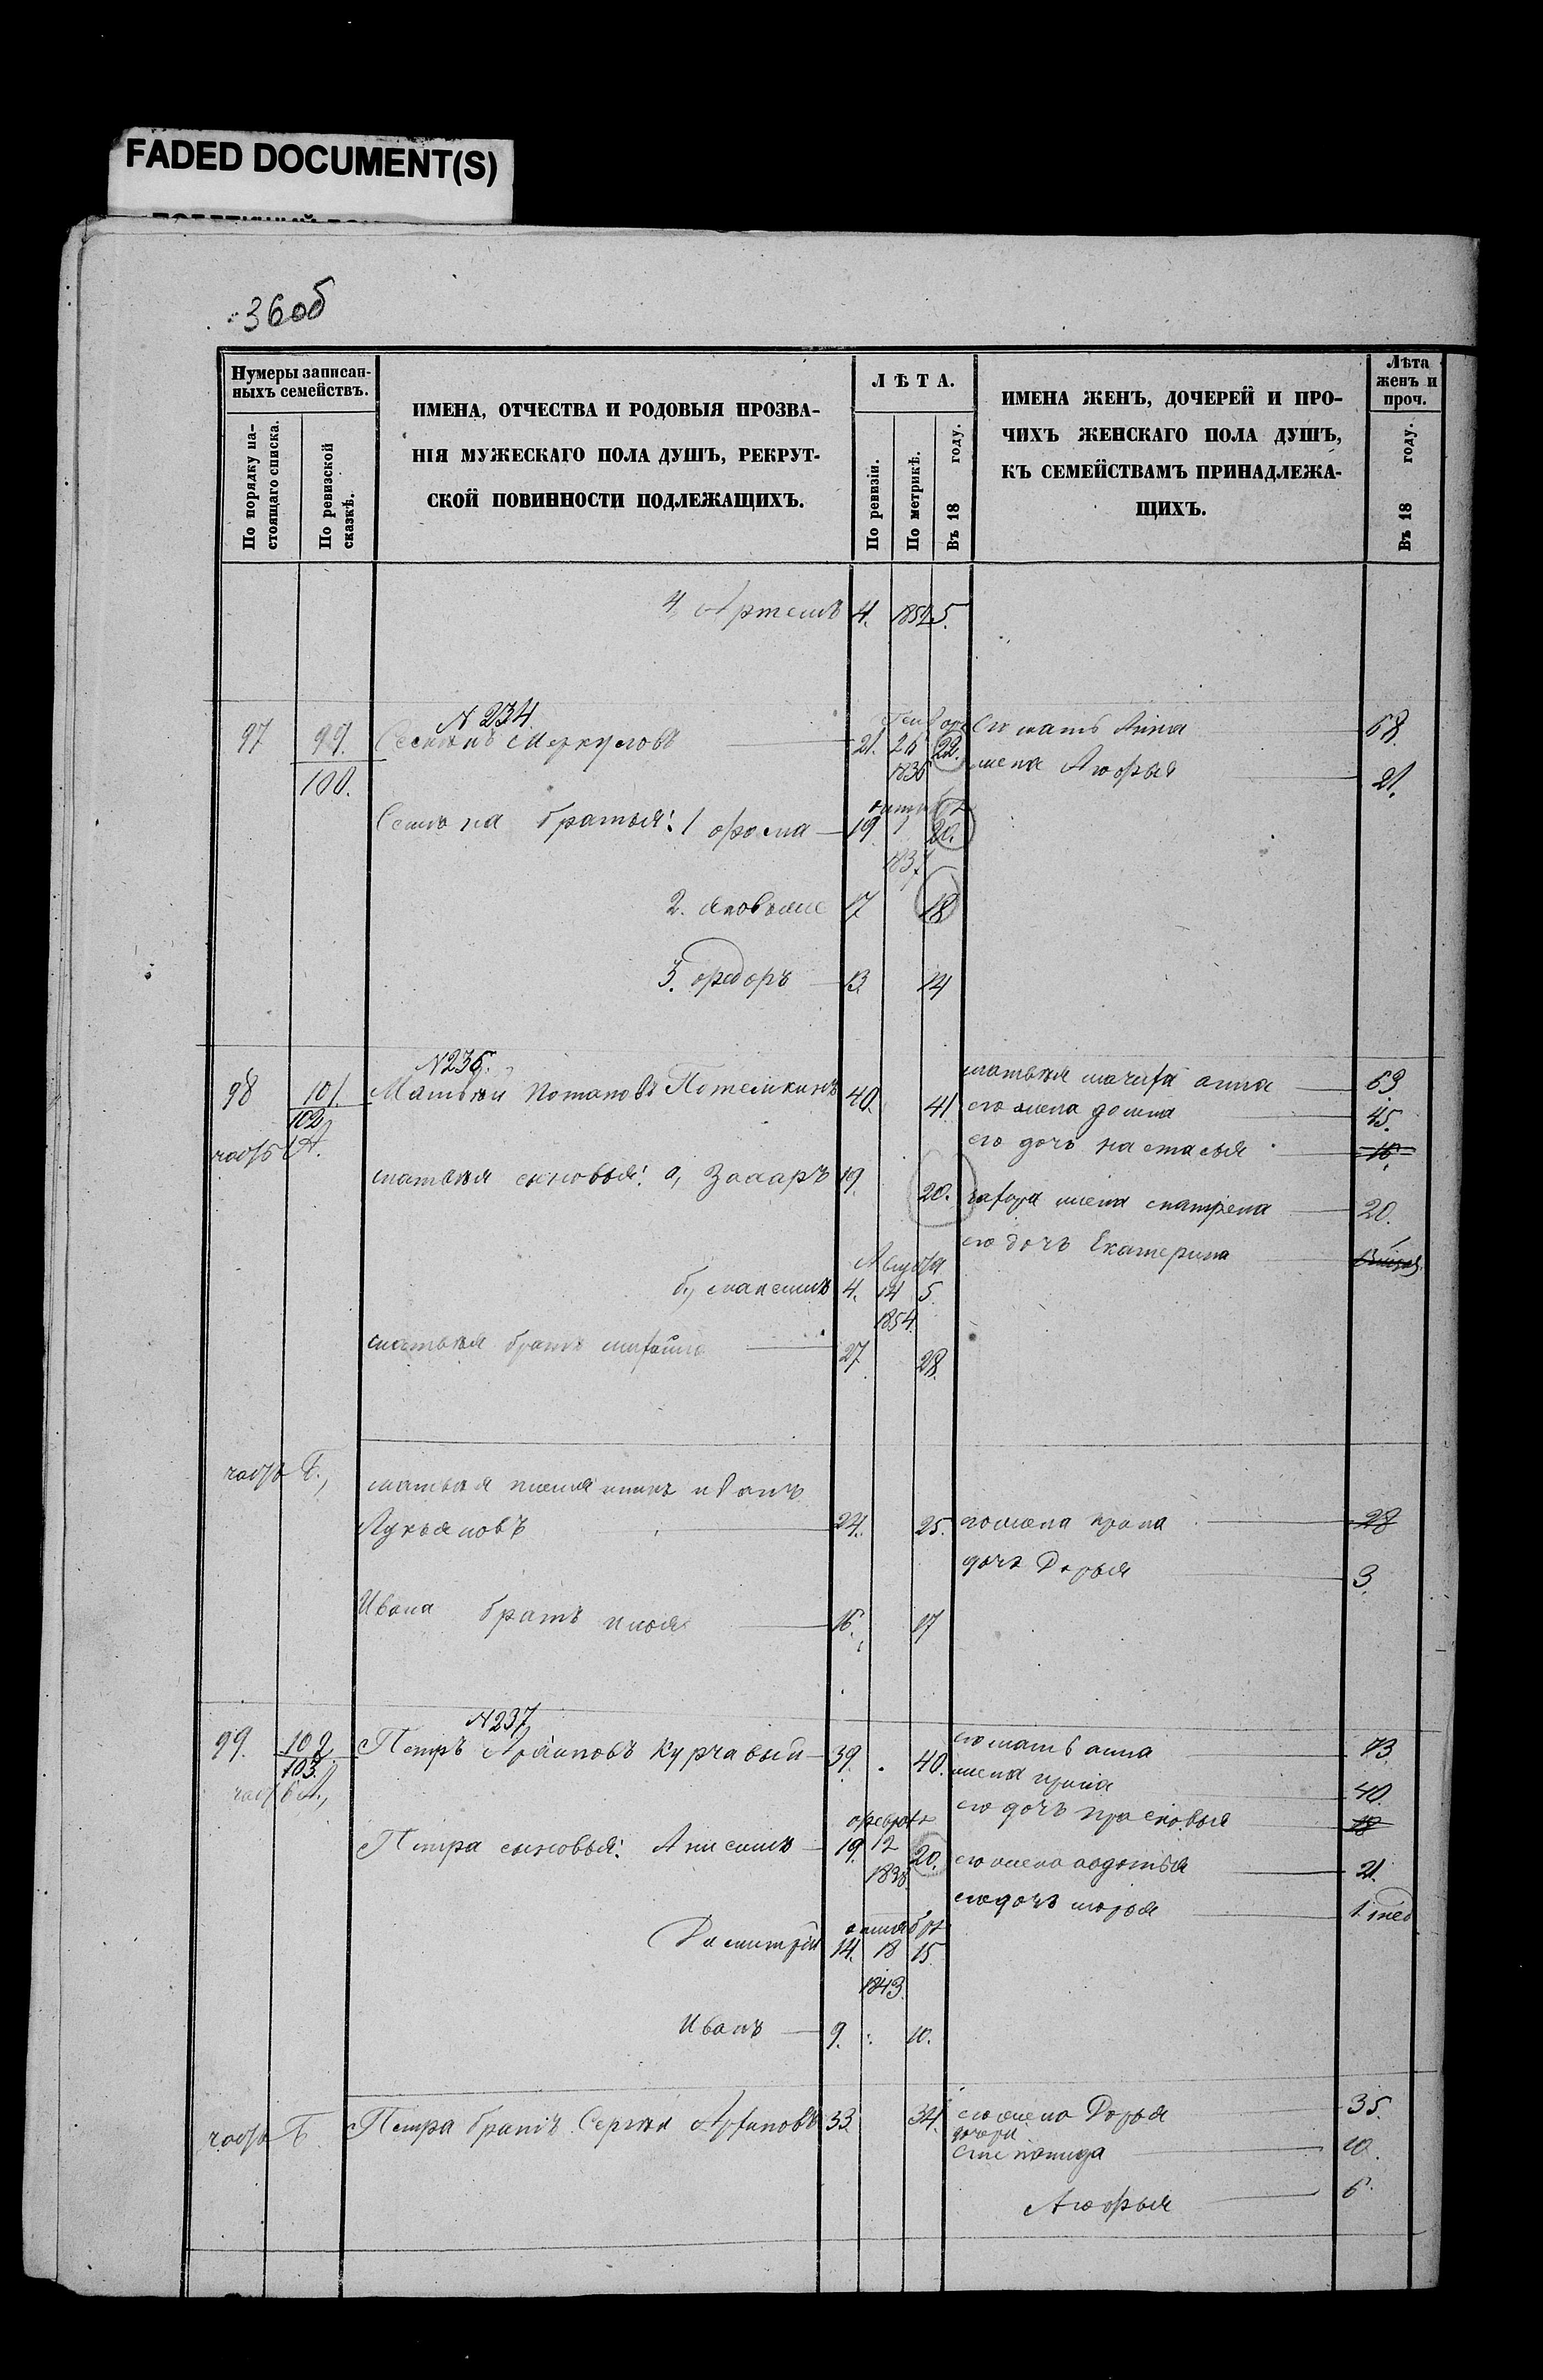 FADED DOCUMENT(S)
36об
Нумеры записан-
ныхъ семействъ.
По порядку на-
стоящаго списка.
По ревизской
сказкѣ.
ИМЕНА, ОТЧЕСТВА И РОДОВЫЯ ПРОЗВА-
НІЯ МУЖЕСКАГО ПОЛА ДУШЪ, РЕКРУТ-
СКОЙ ПОВИННОСТИ ПОДЛЕЖАЩИХЪ.
ЛѢТА.
По ревизіи.
По метрикѣ.
Въ 18 году.
ИМЕНА ЖЕНЪ, ДОЧЕРЕЙ И ПРО-
ЧИХЪ ЖЕНСКАГО ПОЛА ДУШЪ,
КЪ СЕМЕЙСТВАМЪ ПРИНАДЛЕЖА-
ЩИХЪ.
Лѣта
женъ и
проч.
Въ 18 году.
4 Артемъ 4. 5.
N 234.
97 99. Меркуловъ 21. 26 22. его мать Анна 68.
100. 1836 жена 21.
братья: 1 фома 19 7 20.
1837
2. 17 18
3. федоръ 13. 14
N 236.
матвѣя мачиха анна 63.
98 101. Матвѣй Потаповъ Потемкинъ 40. 41 его жена домна 45.
102 его дочь настасья 16.
часть А.
матвѣя сыновья: а, Захаръ 19. 20. захара жена матрена 20.
его дочь Екатерина
Августа
б, максимъ 4. 14 5.
1854.
матвѣя братъ михайло 27. 28.
часть Б., матвѣя племянникъ иванъ
Лукьяновъ 24. 25. его жена ирина 28
дочь Дарья 3.
Ивана братъ илья 16. 17
N 237
99. 102. Петръ Архиповъ Курчавый 39. 40. его мать анна 73.
103. жена ирина 40.
часть А., его дочь прасковья 18
февраля
Петра сыновья: Анисимъ 19. 12 20. его жена авдотья 21.
1838.
его дочь марья 1 мѣс
октября
Дмитрій 14. 18 15.
1843.
Иванъ 9. 10.
часть Б. Петра братъ Сергѣй Архиповъ 33. 34. его жена Дарья 35.
дочери
степанида 10.
6.